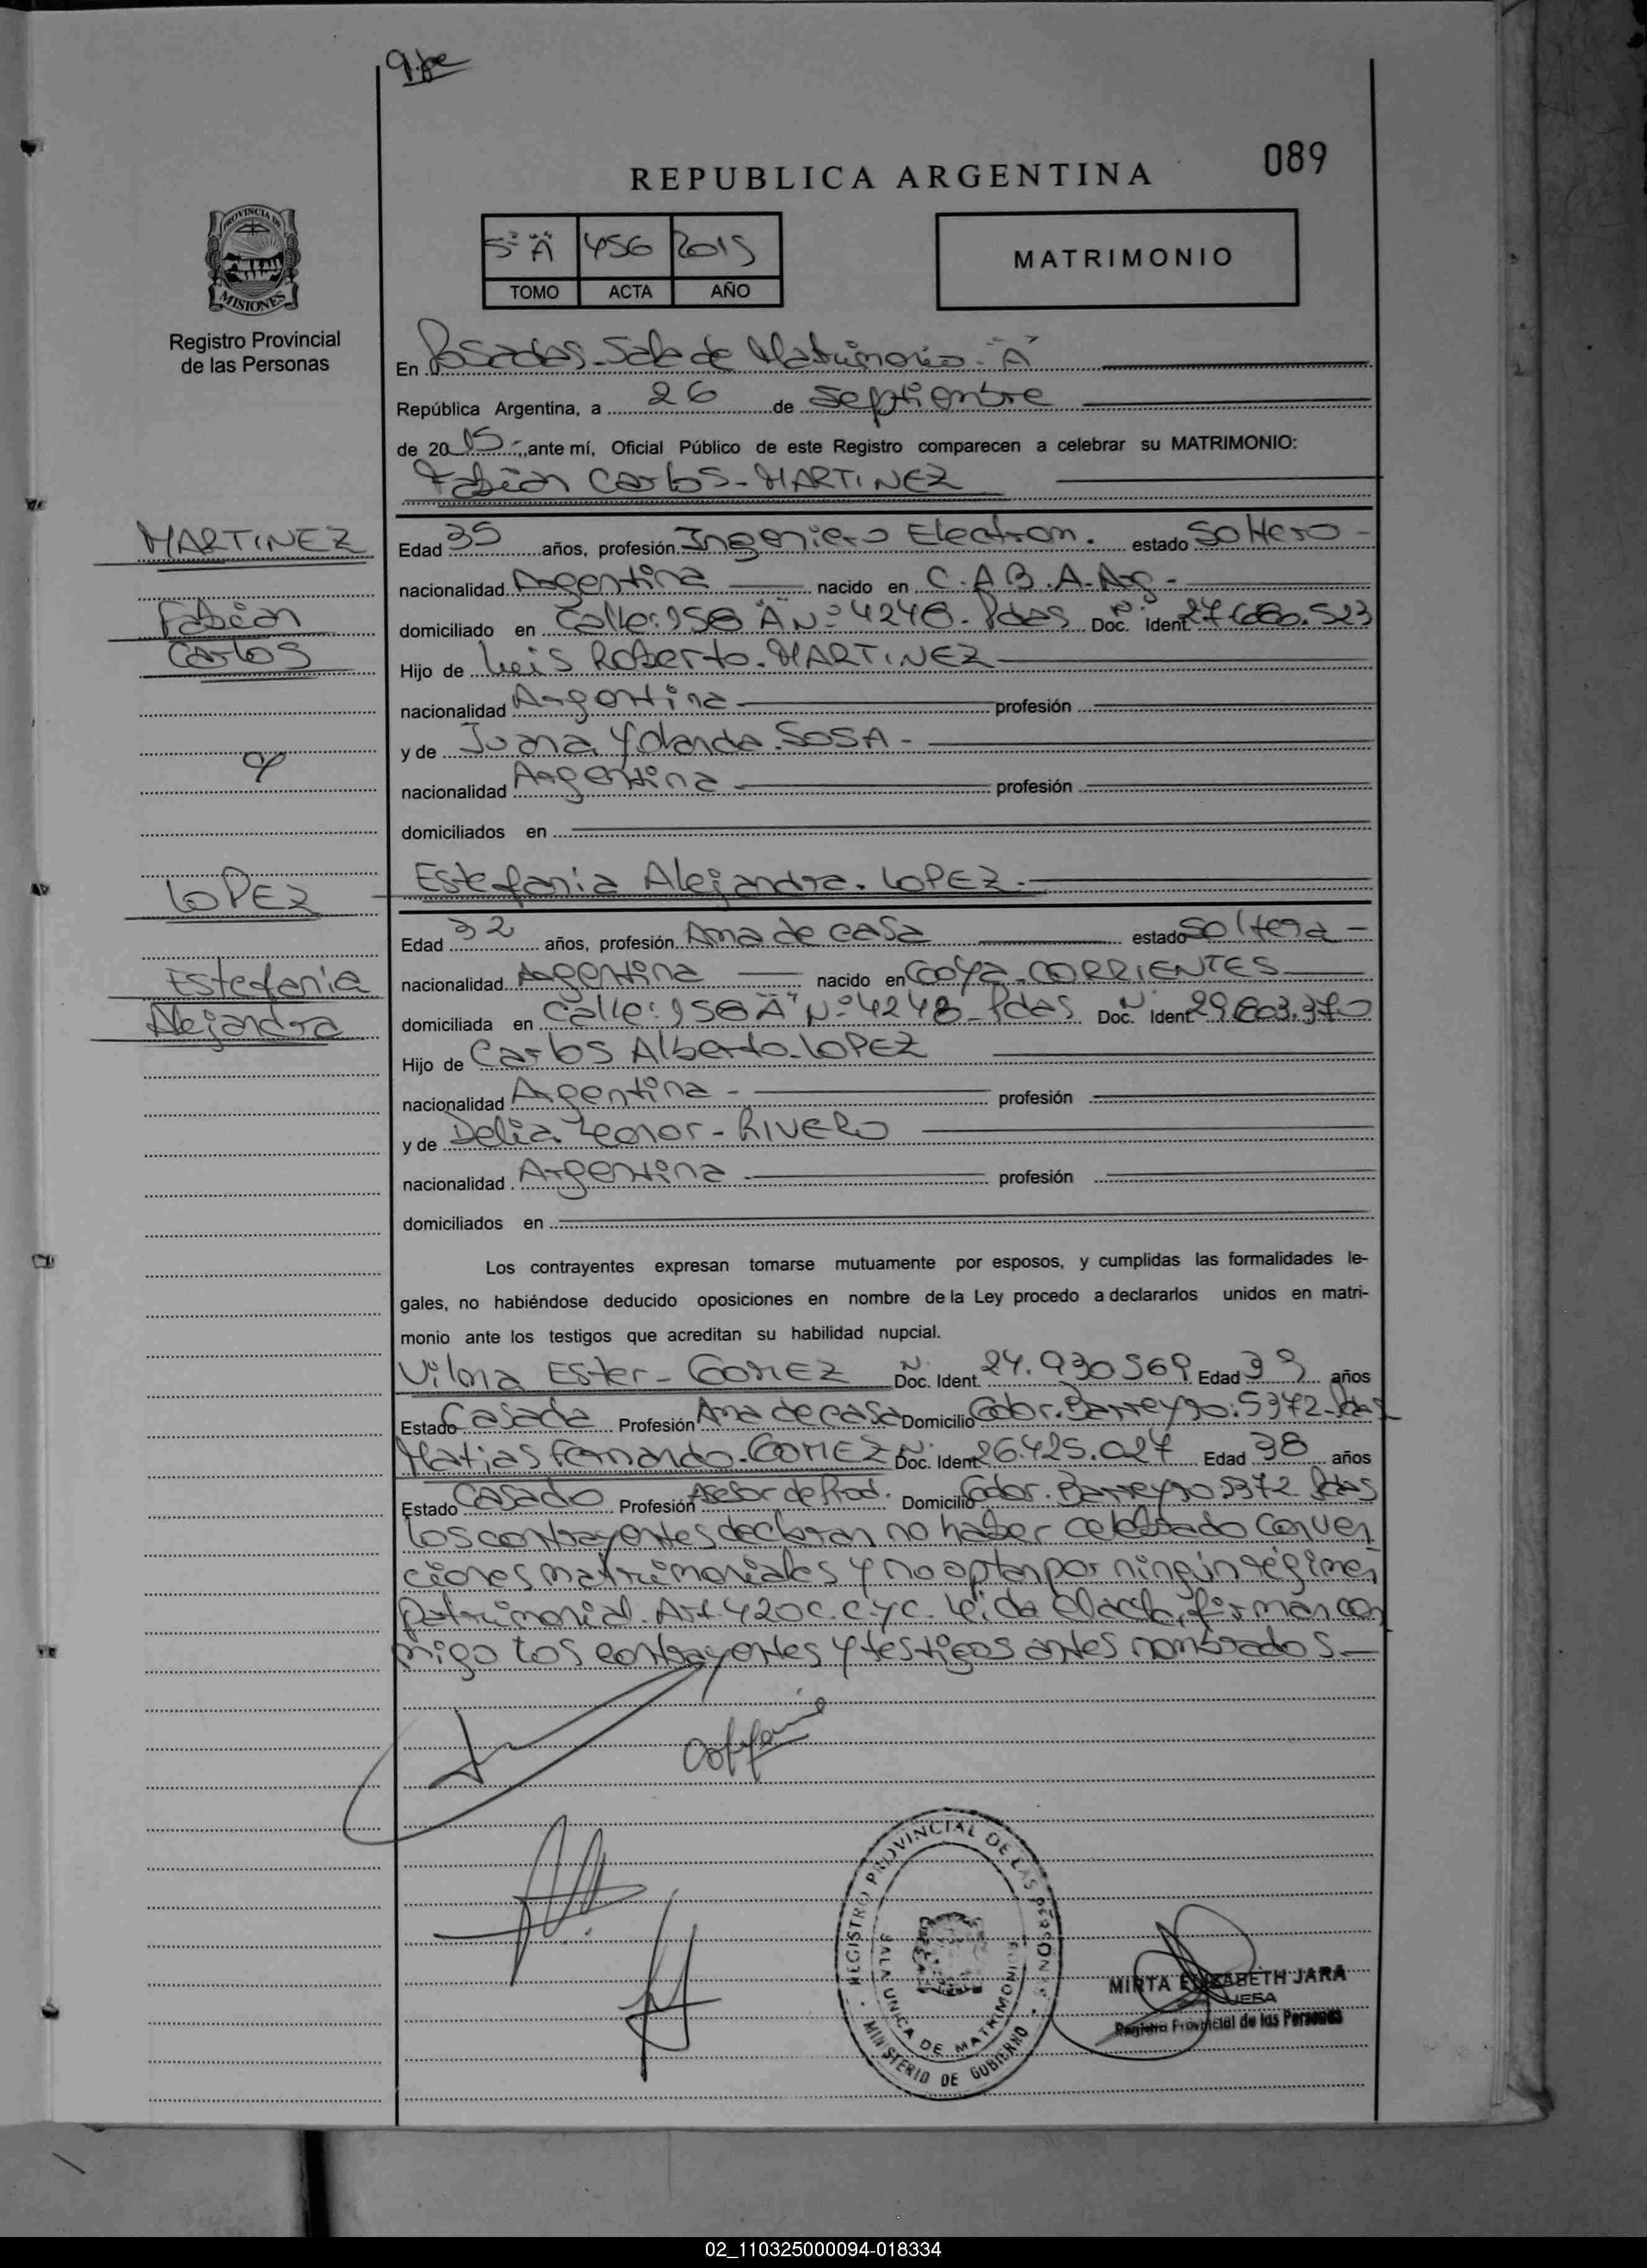 089
REPUBLICA ARGENTINA
PROVINCIA DE
MISIONES
Registro Provincial
de las Personas
5º "A" 456 2015
TOMO ACTA AÑO
MATRIMONIO
En Posadas - Sala de Matrimonio - "A"
República Argentina, a 26 de Septiembre
de 2015 - ante mí, Oficial Público de este Registro comparecen a celebrar su MATRIMONIO:
Fabián Carlos - MARTINEZ
MARTINEZ
Edad 35 años, profesión Ingeniero Electron. estado Soltero -
nacionalidad Argentina nacido en C.A.B.A - Arg -
Fabián
domiciliado en Calle: 158 "A" Nº 4248 - Pdas Doc. Ident. Nº 27.680.523
Carlos
Hijo de Luis Roberto - MARTINEZ
nacionalidad Argentina profesión
y de Juana Yolanda - SOSA -
y
nacionalidad Argentina profesión
domiciliados en
LOPEZ
Estefania Alejandra - LOPEZ -
Edad 32 años, profesión Ama de casa estado Soltera -
Estefania
nacionalidad Argentina nacido en Goya - CORRIENTES
Alejandra
domiciliada en Calle: 158 "A" Nº 4248 - Pdas Doc. Ident. Nº 29.603.370
Hijo de Carlos Alberto - LOPEZ
nacionalidad Argentina - profesión
y de Delia Leonor - RIVERO
nacionalidad Argentina profesión
domiciliados en
Los contrayentes expresan tomarse mutuamente por esposos, y cumplidas las formalidades le-
gales, no habiéndose deducido oposiciones en nombre de la Ley procedo a declararlos unidos en matri-
monio ante los testigos que acreditan su habilidad nupcial.
Vilma Ester - GOMEZ Nº Doc. Ident. 24.930.569 Edad 39 años
Estado Casada Profesión Ama de casa Domicilio Gdor. Barreyro: 5372 - Pdas
Matias Fernando - GOMEZ Nº Doc. Ident. 26.425.027 Edad 38 años
Estado Casado Profesión Asesor de Prod. Domicilio Gdor. Barreyro: 5372 Pdas
Los contrayentes declaran no haber celebrado conven
ciones matrimoniales y no optan por ningún régimen
Patrimonial - Art. 420 C.C.yC. Leída el acta, firman con
migo los contrayentes y testigos antes nombrados. -
REGISTRO PROVINCIAL DE LAS PERSONAS
SALA UNICA DE MATRIMONIOS
MINISTERIO DE GOBIERNO
MIRTA ELIZABETH JARA
JEFA
Registro Provincial de las Personas
02_110325000094-018334